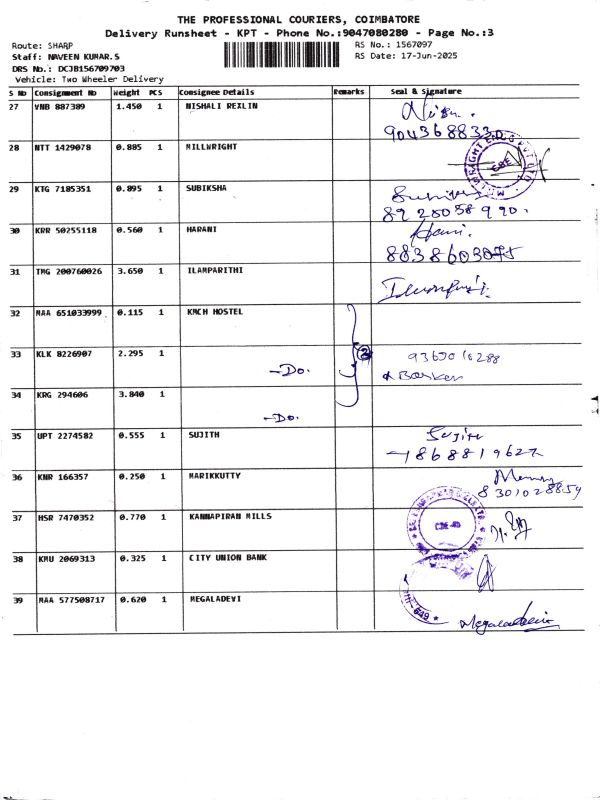 THE PROFESSIONAL COURIERS, COIMBATORE
Delivery Runsheet - KPT - Phone No.:9047080280 - Page No.:3
Route: SHARP
RS No.: 1567097
Staff: NAVEEN KUMAR.S
RS Date: 17-Jun-2025
DRS No.: DCJB156709703
Vehicle: Two Wheeler Delivery
S No Consignment No Weight PCS Consignee Details Remarks Seal & Signature
27 VNB 887389 1.450 1 NISHALI REXLIN
28 NTT 1429078 0.885 1 MILLWRIGHT
CBE
29 KTG 7185351 0.895 1 SUBIKSHA
30 KRR 50255118 0.560 1 HARANI
Harni.
31 TMG 200760026 3.650 1 ILAMPARITHI
32 MAA 651033999 0.115 1 KMCH HOSTEL
33 KLK 8226907 2.295 1
-Do.
3
34 KRG 294606 3.840 1
-Do.
35 UPT 2274582 0.555 1 SUJITH
36 KNR 166357 0.250 1 MARIKKUTTY
8301028859
37 HSR 7470352 0.770 1 KANNAPIRAN MILLS
38 KMU 2069313 0.325 1 CITY UNION BANK
39 MAA 577508717 0.620 1 MEGALADEVI
Megaladevi